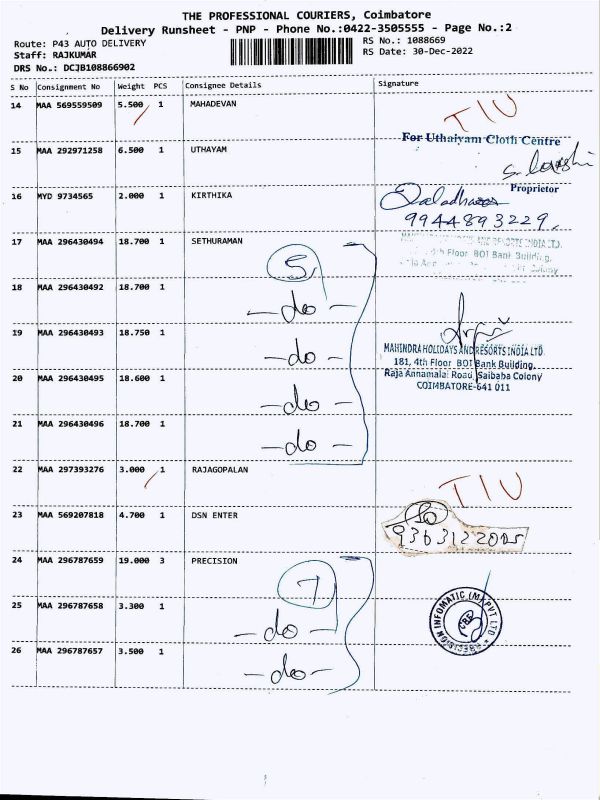 THE PROFESSIONAL COURIERS, Coimbatore
Delivery Runsheet - PNP - Phone No.:0422-3505555 - Page No.:2
Route: P43 AUTO DELIVERY
Staff: RAJKUMAR
DRS No.: DCJB108866902
RS No.: 1088669
RS Date: 30-Dec-2022
S No Consignment No Weight PCS Consignee Details Signature
14 MAA 569559509 5.500 1 MAHADEVAN TIU
For Uthaiyam Cloth Centre
15 MAA 292971258 6.500 1 UTHAYAM
Proprietor
16 MYD 9734565 2.000 1 KIRTHIKA
9944893229
17 MAA 296430494 18.700 1 SETHURAMAN 5
4th Floor BOI Bank Building,
Colony
18 MAA 296430492 18.700 1 -do-
19 MAA 296430493 18.750 1 -do-
MAHINDRA HOLIDAYS AND RESORTS INDIA LTD
181, 4th Floor BOI Bank Building,
Raja Annamalai Road, Saibaba Colony
COIMBATORE-641 011
20 MAA 296430495 18.600 1 -do-
21 MAA 296430496 18.700 1 -do-
22 MAA 297393276 3.000 1 RAJAGOPALAN TIU
23 MAA 569207818 4.700 1 DSN ENTER
24 MAA 296787659 19.000 3 PRECISION 7
25 MAA 296787658 3.300 1 -do-
INFOMATIC (M) PVT LTD
CBE
26 MAA 296787657 3.500 1 -do-